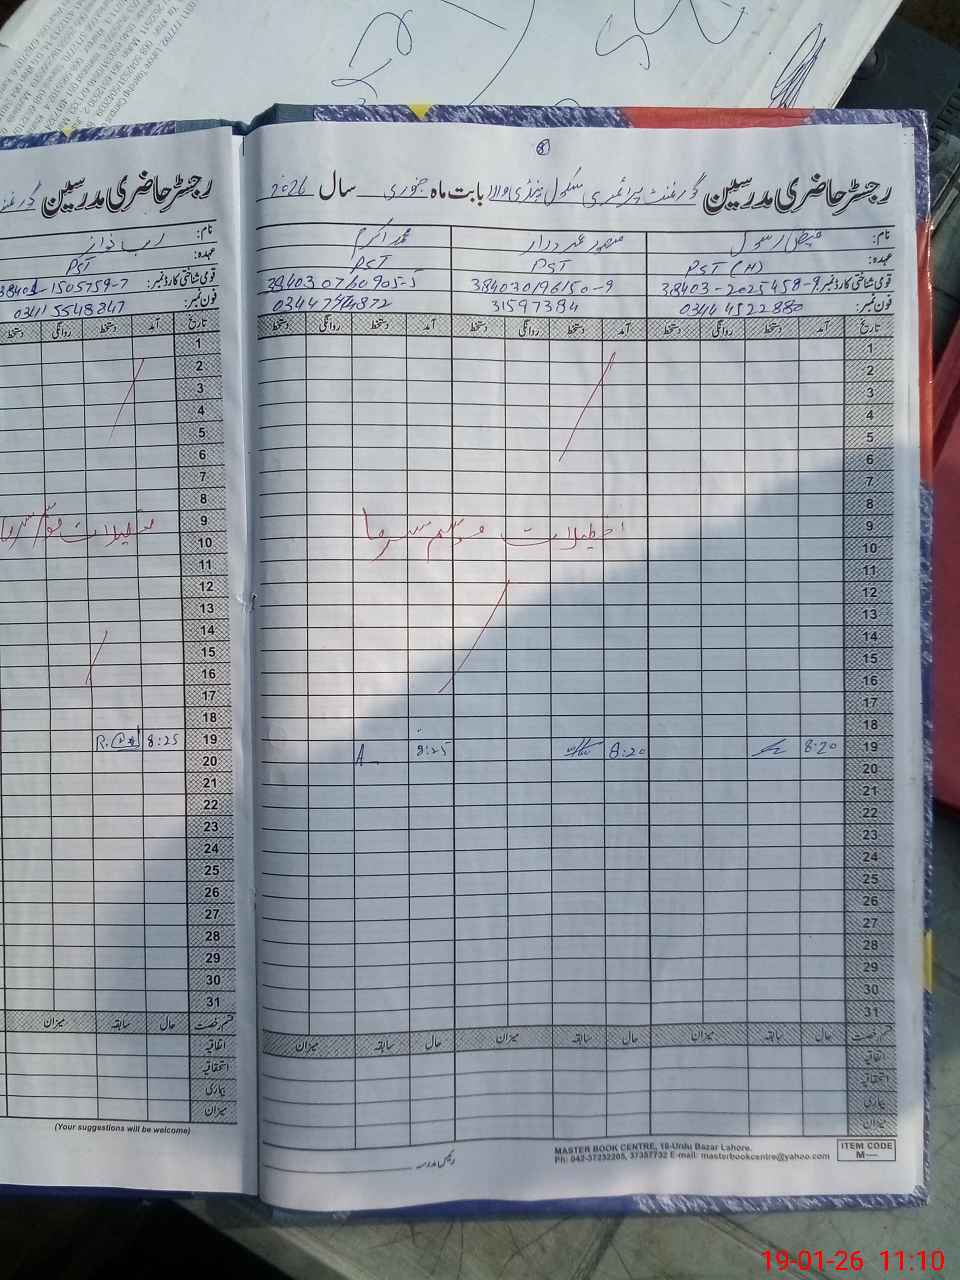 رجسٹر حاضری مدرسین گورنمنٹ پرائمری سکول ہنڈی والا بابت ماہ جنوری سال 2026
نام: فیض رسول
منصور عمر دراز
محمد اکرم
عہدہ: PST (H)
PST
PST
قومی شناختی کارڈ نمبر: 38403-2025458-9
384030196150-9
38403 07 60905-5
فون نمبر: 0344 4522880
31597384
تاریخ آمد دستخط روانگی دستخط آمد دستخط روانگی دستخط آمد دستخط روانگی دستخط
1
2
3
4
5
6
7
8
9
تعطیلات موسم سرما
10
11
12
13
14
15
16
17
18
19 8:20 8:20 8:25 A
20
21
22
23
24
25
26
27
28
29
30
31
قسم رخصت حال سابقہ میزان حال سابقہ میزان حال سابقہ میزان
اتفاقیہ
استحقاقیہ
بیماری
میزان
رئیس مدرسہ
MASTER BOOK CENTRE, 18-Urdu Bazar Lahore.
Ph: 042-37232205, 37357732 E-mail: masterbookcentre@yahoo.com
ITEM CODE
M—
رجسٹر حاضری مدرسین
نام: رب نواز
عہدہ: PST
قومی شناختی کارڈ نمبر: 38401-1505759-7
فون نمبر: 0341 5548347
تاریخ آمد دستخط روانگی دستخط
1
2
3
4
5
6
7
8
9
تعطیلات موسم سرما
10
11
12
13
14
15
16
17
18
19 8:25
20
21
22
23
24
25
26
27
28
29
30
31
قسم رخصت حال سابقہ میزان
اتفاقیہ
استحقاقیہ
بیماری
میزان
(Your suggestions will be welcome)
19-01-26 11:10